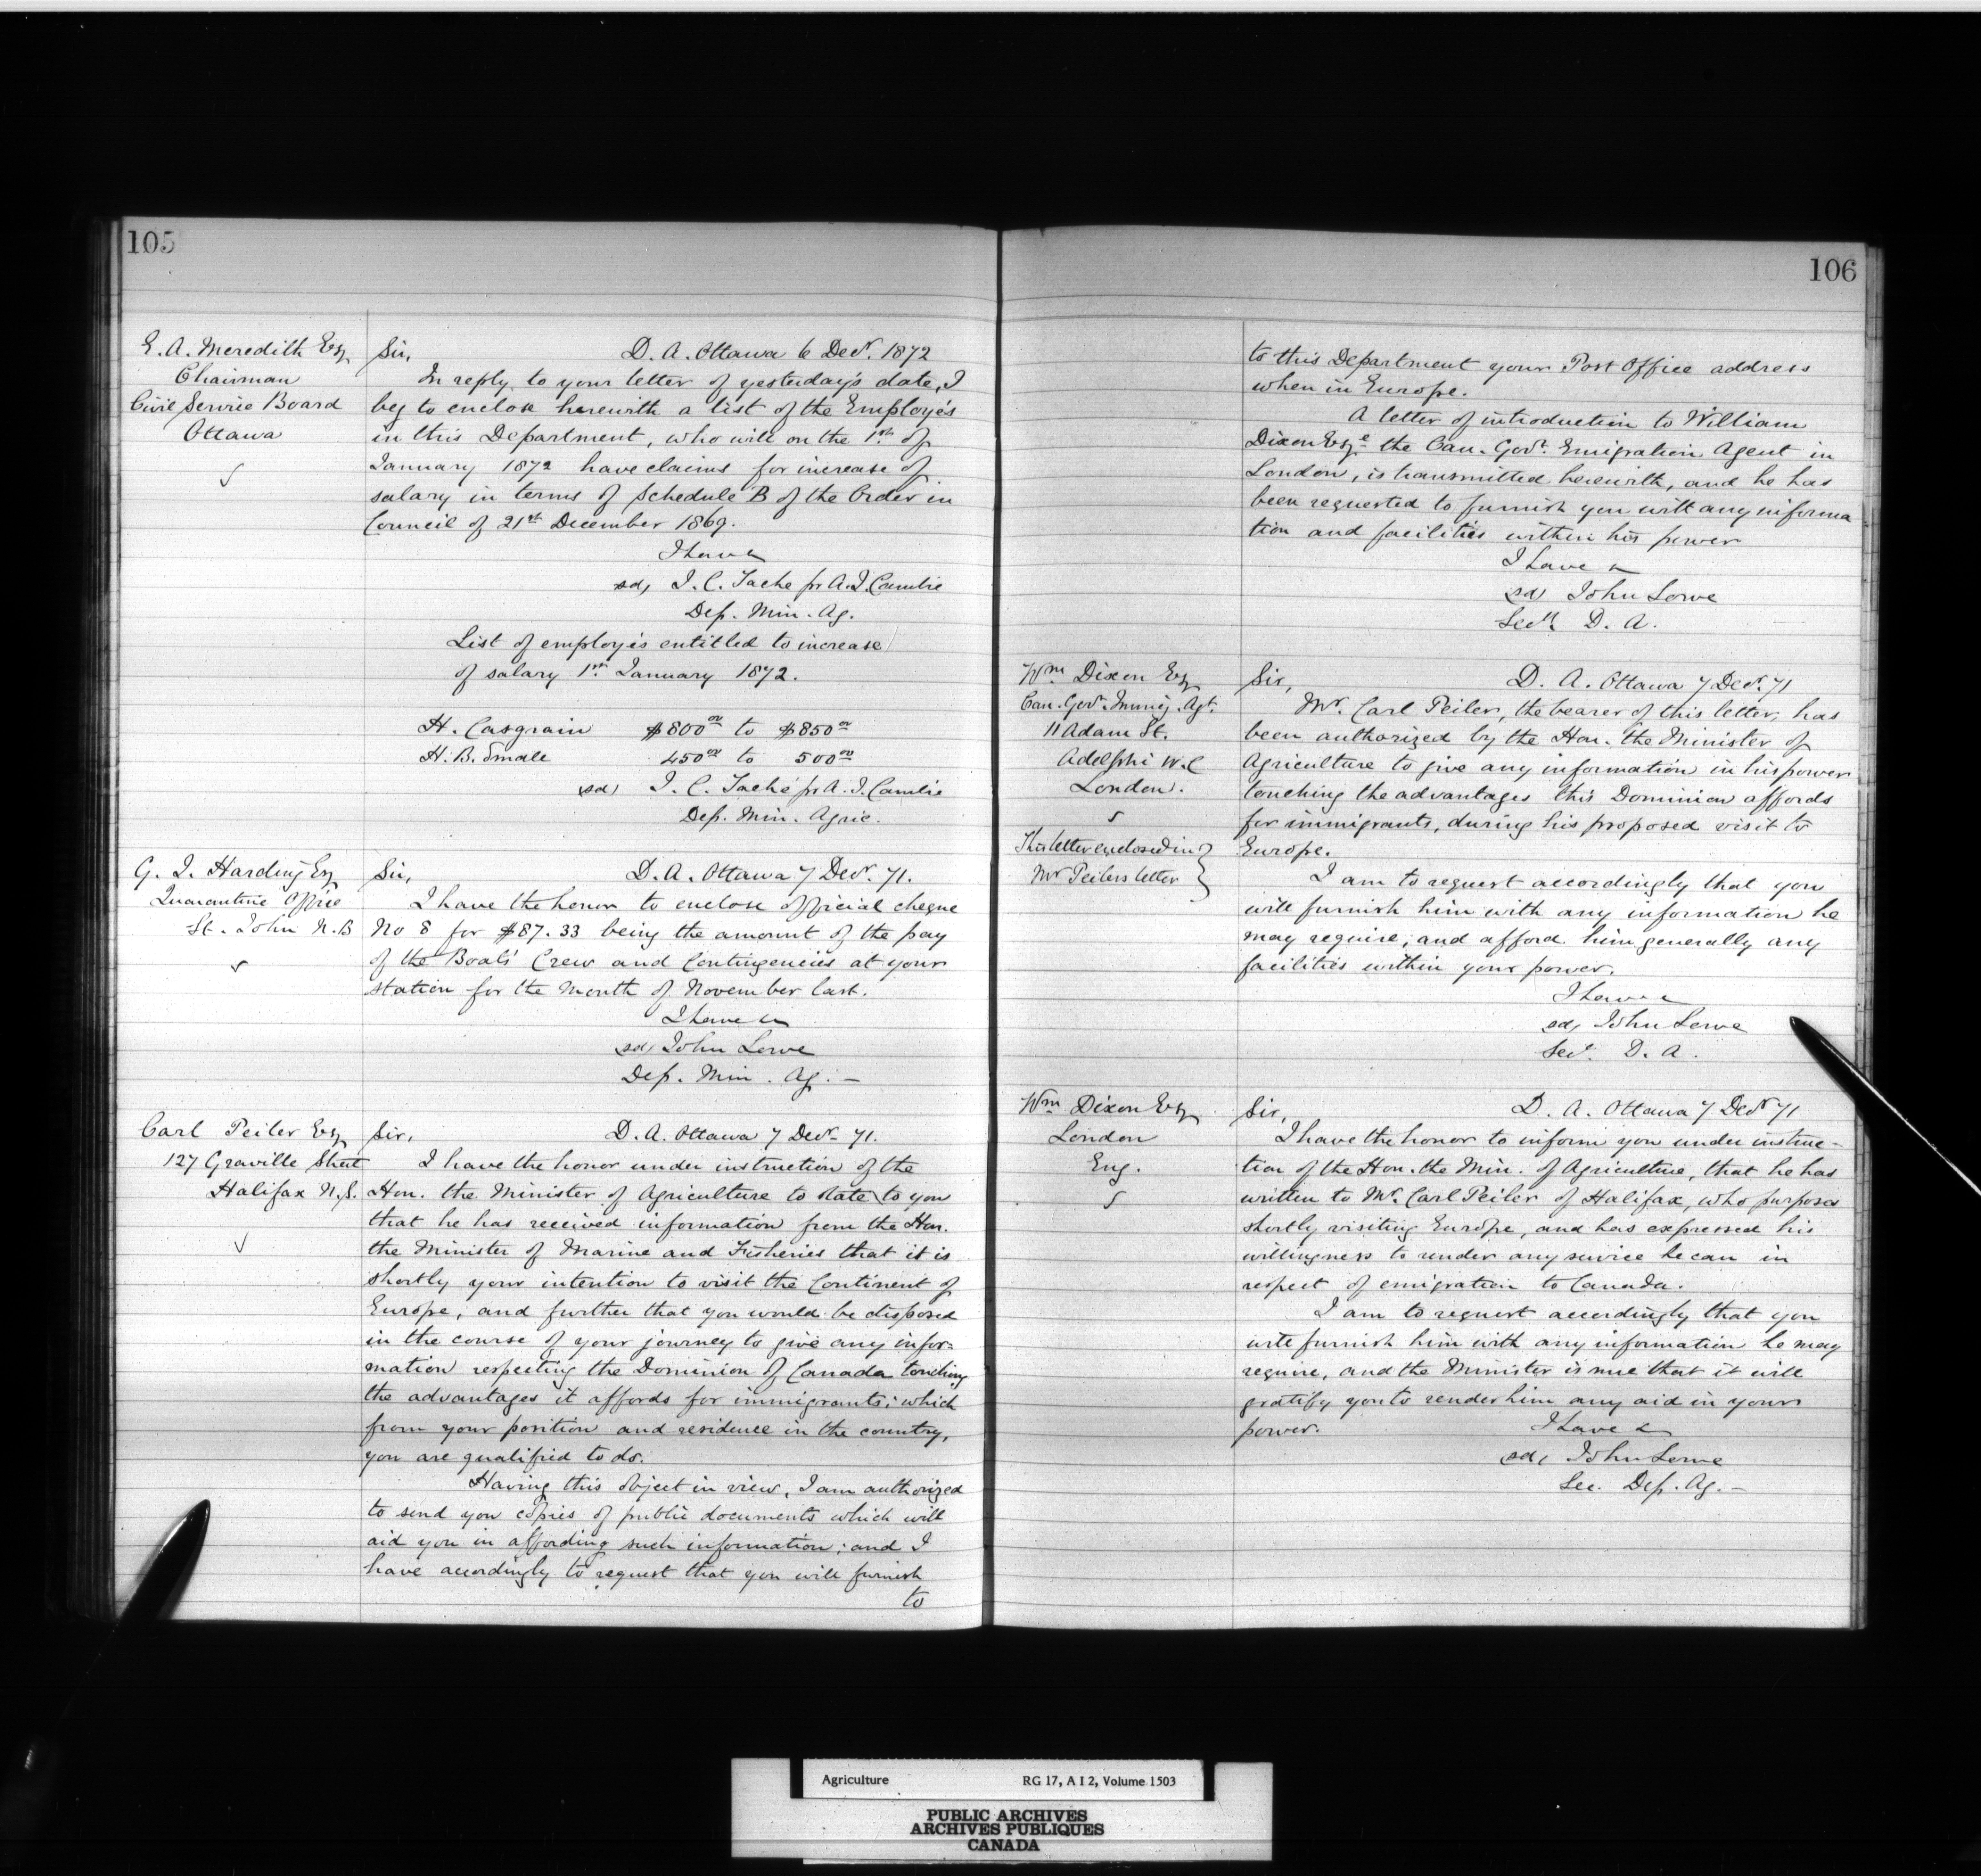 105
E. A. Meredith Esq
Chairman
Civil Service Board
Ottawa
Sir, D. A. Ottawa 6 Decr. 1872
In reply to your letter of yesterday's date, I
beg to enclose herewith a list of the Employés
in this Department, who will on the 1st of
January 1872 have claims for increase of
salary in terms of Schedule B of the Order in
Council of 21st December 1869.
I have &
sd, J. C. Taché pr A. J. Cambie
Dep. Min. Ag.
List of employés entitled to increase
of salary 1st January 1872.
H. Casgrain $800 00 to $850 00
H. B. Small 450 00 to 500 00
sd, J. C. Taché pr A. J. Cambie
Dep. Min. Agric.
G. J. Harding Esq
Quarantine Office
St. John N.B
Sir, D. A. Ottawa 7 Decr. 71.
I have the honor to enclose official cheque
No 8 for $87.33 being the amount of the pay
of the Boats' Crew and Contingencies at your
station for the Month of November last.
I have &
sd, John Lowe
Dep. Min. Ag. —
Carl Peiler Esq
127 Graville Street
Halifax N.S.
Sir, D. A. Ottawa 7 Decr. 71.
I have the honor under instruction of the
Hon. the Minister of Agriculture to state to you
that he has received information from the Hon.
the Minister of Marine and Fisheries that it is
shortly your intention to visit the Continent of
Europe, and further that you would be disposed
in the course of your journey to give any infor-
mation respecting the Dominion of Canada touching
the advantages it affords for immigrants; which
from your position and residence in the country,
you are qualified to do.
Having this object in view, I am authorized
to send you copies of public documents which will
aid you in affording such information; and I
have accordingly to request that you will furnish
to
106
to this Department your Post Office address
when in Europe.
A letter of introduction to William
Dixon Esqe the Can. Govt. Emigration Agent in
London, is transmitted herewith, and he has
been requested to furnish you with any informa
tion and facilities within his power
I have &
sd, John Lowe
Secy. D. A.
Wm Dixon Esq
Can. Govt. Immig. Agt.
11 Adam St.
Adelphi W.C
London.
This letter enclosed in
Mr Peilers letter
Sir, D. A. Ottawa 7 Decr. 71
Mr. Carl Peiler, the bearer of this letter, has
been authorized by the Hon. the Minister of
Agriculture to give any information in his power
touching the advantages this Dominion affords
for immigrants, during his proposed visit to
Europe.
I am to request accordingly that you
will furnish him with any information he
may require, and afford him generally any
facilities within your power.
I have &
sd, John Lowe
Secy. D. A.
Wm Dixon Esq
London
Eng.
Sir, D. A. Ottawa 7 Decr 71
I have the honor to inform you under instruc-
tion of the Hon. the Min. of Agriculture, that he has
written to Mr. Carl Peiler of Halifax, who purposes
shortly visiting Europe, and has expressed his
willingness to render any service he can in
respect of emigration to Canada.
I am to request accordingly that you
will furnish him with any information he may
require, and the Minister is sure that it will
gratify you to render him any aid in your
power. I have &
sd, John Lowe
Sec. Dep. Ag. —
Agriculture RG 17, A I 2, Volume 1503
PUBLIC ARCHIVES
ARCHIVES PUBLIQUES
CANADA